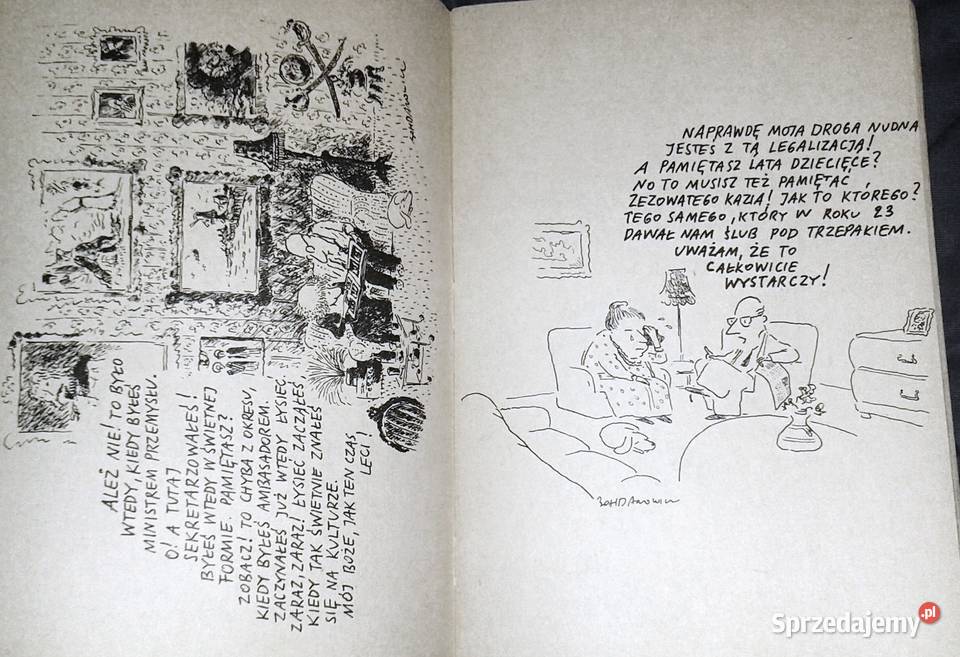 ALEŻ NIE! TO BYŁO
WTEDY, KIEDY BYŁEŚ
MINISTREM PRZEMYSŁU.
O! A TUTAJ
SEKRETARZOWAŁEŚ!
BYŁEŚ WTEDY W ŚWIETNEJ
FORMIE. PAMIĘTASZ?
ZOBACZ! TO CHYBA Z OKRESU,
KIEDY BYŁEŚ AMBASADOREM.
ZACZYNAŁEŚ JUŻ WTEDY ŁYSIEĆ.
ZARAZ, ZARAZ! ŁYSIEĆ ZACZĄŁEŚ
KIEDY TAK ŚWIETNIE ZNAŁEŚ
SIĘ NA KULTURZE.
MÓJ BOŻE, JAK TEN CZAS
LECI!
NAPRAWDĘ MOJA DROGA NUDNA
JESTEŚ Z TĄ LEGALIZACJĄ!
A PAMIĘTASZ LATA DZIECIĘCE?
NO TO MUSISZ TEŻ PAMIĘTAĆ
ZEZOWATEGO KAZIA! JAK TO KTÓREGO?
TEGO SAMEGO, KTÓRY W ROKU 23
DAWAŁ NAM ŚLUB POD TRZEPAKIEM.
UWAŻAM, ŻE TO
CAŁKOWICIE
WYSTARCZY!
BOHDANOWICZ
Sprzedajemy.pl